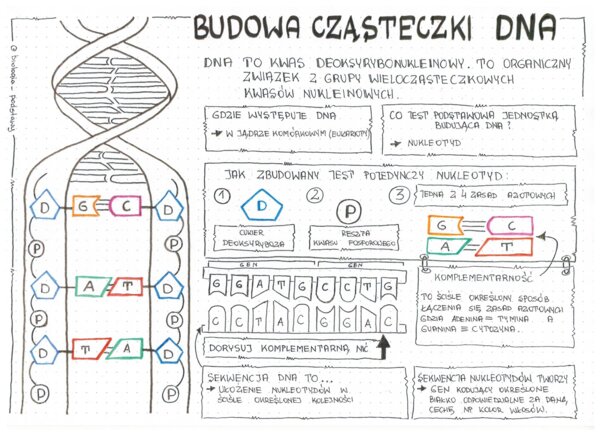 BUDOWA CZĄSTECZKI DNA
DNA TO KWAS DEOKSYRYBONUKLEINOWY. TO ORGANICZNY
ZWIĄZEK Z GRUPY WIELOCZĄSTECZKOWYCH
KWASÓW NUKLEINOWYCH.
GDZIE WYSTĘPUJE DNA
→ W JĄDRZE KOMÓRKOWYM (EUKARIOTY)
CO JEST PODSTAWOWĄ JEDNOSTKĄ
BUDUJĄCĄ DNA?
→ NUKLEOTYD
JAK ZBUDOWANY JEST POJEDYNCZY NUKLEOTYD:
1 D
CUKIER
DEOKSYRYBOZA
2 P
RESZTA
KWASU FOSFOROWEGO
3 JEDNA Z 4 ZASAD AZOTOWYCH
G C
A T
KOMPLEMENTARNOŚĆ
TO ŚCIŚLE OKREŚLONY SPOSÓB
ŁĄCZENIA SIĘ ZASAD AZOTOWYCH
GDZIE ADENINA = TYMINA A
GUANINA ≡ CYTOZYNA.
GEN GEN
G G A T G C C T G
C C T A C G G A C
DORYSUJ KOMPLEMENTARNĄ NIĆ
SEKWENCJA DNA TO...
→ UŁOŻENIE NUKLEOTYDÓW W
ŚCIŚLE OKREŚLONEJ KOLEJNOŚCI
SEKWENCJA NUKLEOTYDÓW TWORZY
→ GEN KODUJĄCY OKREŚLONE
BIAŁKO ODPOWIEDZIALNE ZA DANĄ
CECHĘ NP KOLOR WŁOSÓW.
D G C D
P P
D A T D
P P
D T A D
P P